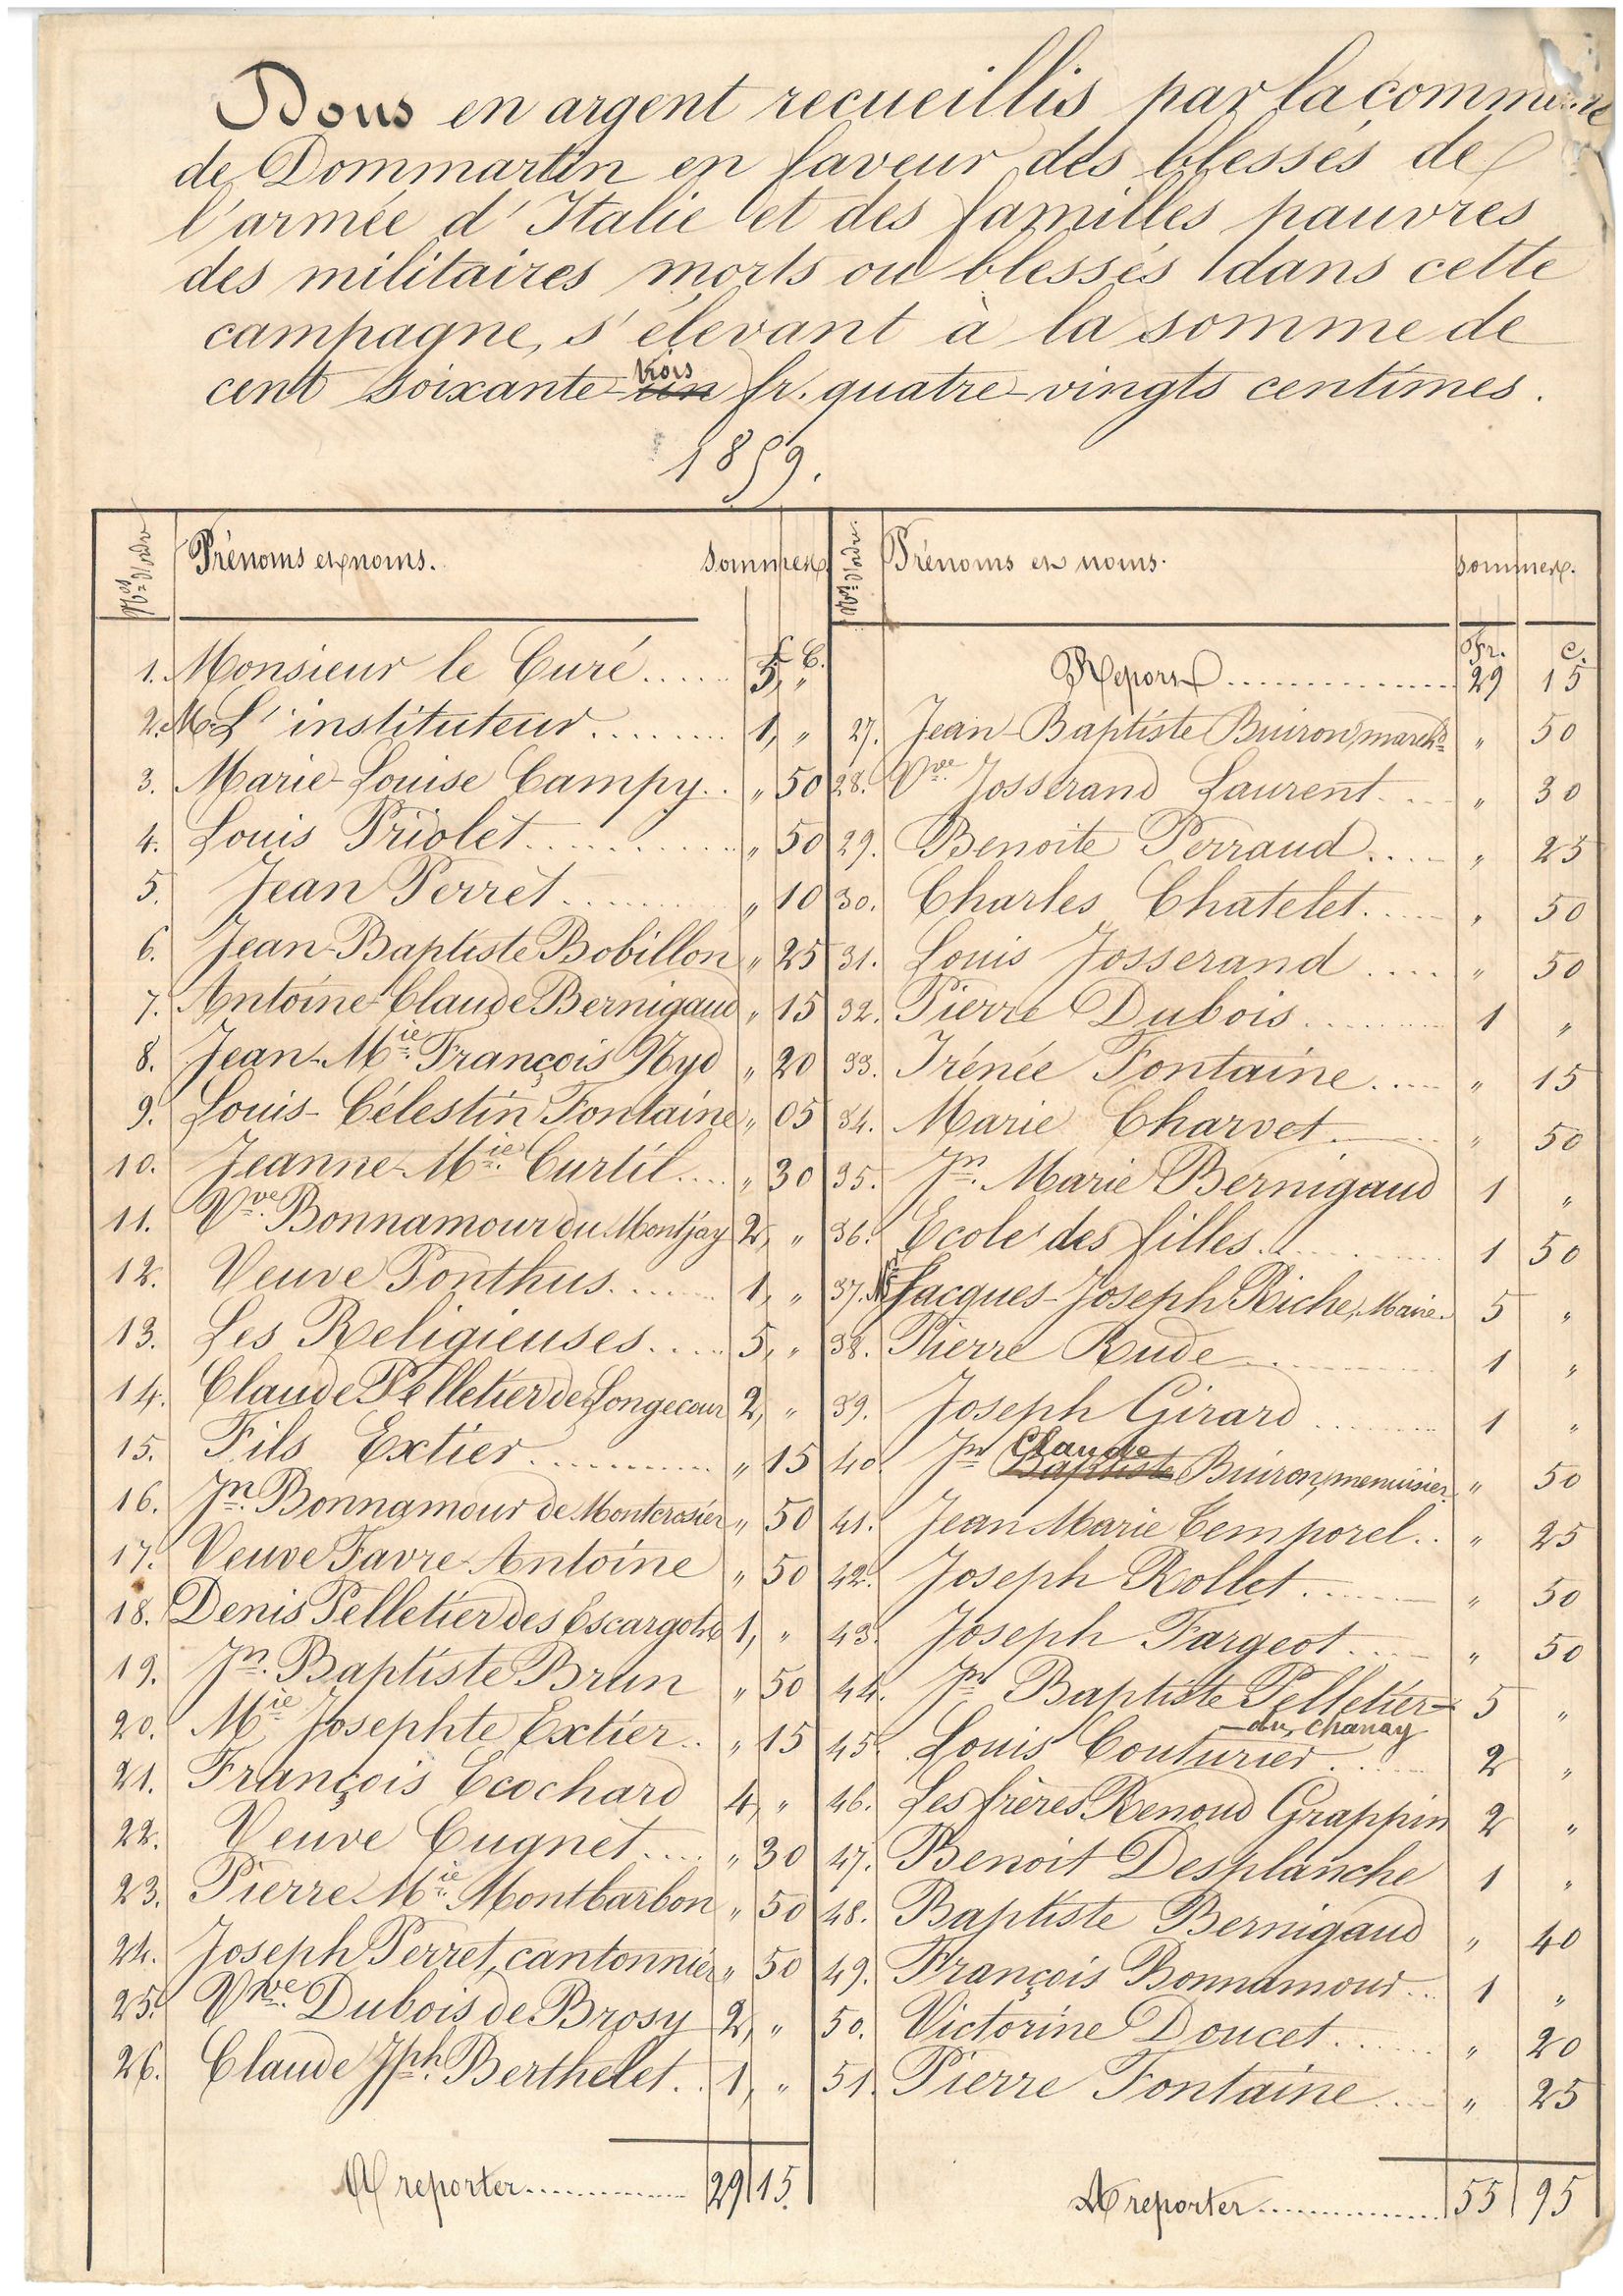 Dons en argent recueillis par la commune
de Dommartin en faveur des blessés de
l'armée d'Italie et des familles pauvres
des militaires morts ou blessés dans cette
campagne, s'élevant à la somme de
cent soixante-un trois fr. quatre-vingts centimes.
1859.
Nos d'ordre Prénoms et noms. Sommes.
f. c.
1. Monsieur le Curé..... 5, "
2. Mr L'instituteur........ 1, "
3. Marie-Louise Campy.. " 50
4. Louis Priolet........... " 50
5. Jean Perret......... " 10
6. Jean-Baptiste Bobillon " 25
7. Antoine-Claude Bernigaud " 15
8. Jean-Mie François Nyd " 20
9. Louis-Célestin Fontaine " 05
10. Jeanne-Mie Curtil.... " 30
11. Vve Bonnamour du Montjay 2, "
12. Veuve Ponthus...... 1, "
13. Les Religieuses..... 5, "
14. Claude Pelletier de Longecour 2, "
15. Fils Extier........... " 15
16. Jn. Bonnamour de Montcrosier " 50
17. Veuve Favre-Antoine " 50
18. Denis Pelletier des Escargots 1, "
19. Jn. Baptiste Brun " 50
20. Mie Josephte Extier.. " 15
21. François Ecochard 4, "
22. Veuve Cugnet.... " 30
23. Pierre Mie Montbarbon " 50
24. Joseph Perret, cantonnier " 50
25. Vve Dubois de Brosy 2, "
26. Claude Jph. Berthelet.. 1, "
A reporter............... 29 15.
Nos d'ordre Prénoms et noms. Sommes.
Fr. c.
Report............... 29 15
27. Jean-Baptiste Buiron, marchd " 50
28. Vve Josserand Laurent.... " 30
29. Benoite Perraud.... " 25
30. Charles Chatelet..... " 50
31. Louis Josserand .... " 50
32. Pierre Dubois......... 1 "
33. Irénée Fontaine..... " 15
34. Marie Charvet....... " 50
35. Jn. Marie Bernigaud 1 "
36. Ecole des filles.......... 1 50
37. Mr Jacques-Joseph Riche, Maire. 5 "
38. Pierre Rude........... 1 "
39. Joseph Girard........ 1 "
40. Jn Baptiste Claude Buiron, menuisier. " 50
41. Jean Marie Temporel.. " 25
42. Joseph Rollet........ " 50
43. Joseph Fargeot.... " 50
44. Jn Baptiste Pelletier 5 "
du Chanay
45. Louis Couturier....... 2 "
46. Les frères Renoud Grappin 2 "
47. Benoit Desplanche 1 "
48. Baptiste Bernigaud " 40
49. François Bonnamour.. 1 "
50. Victorine Doucet....... " 20
51. Pierre Fontaine.... " 25
A reporter................. 55 95